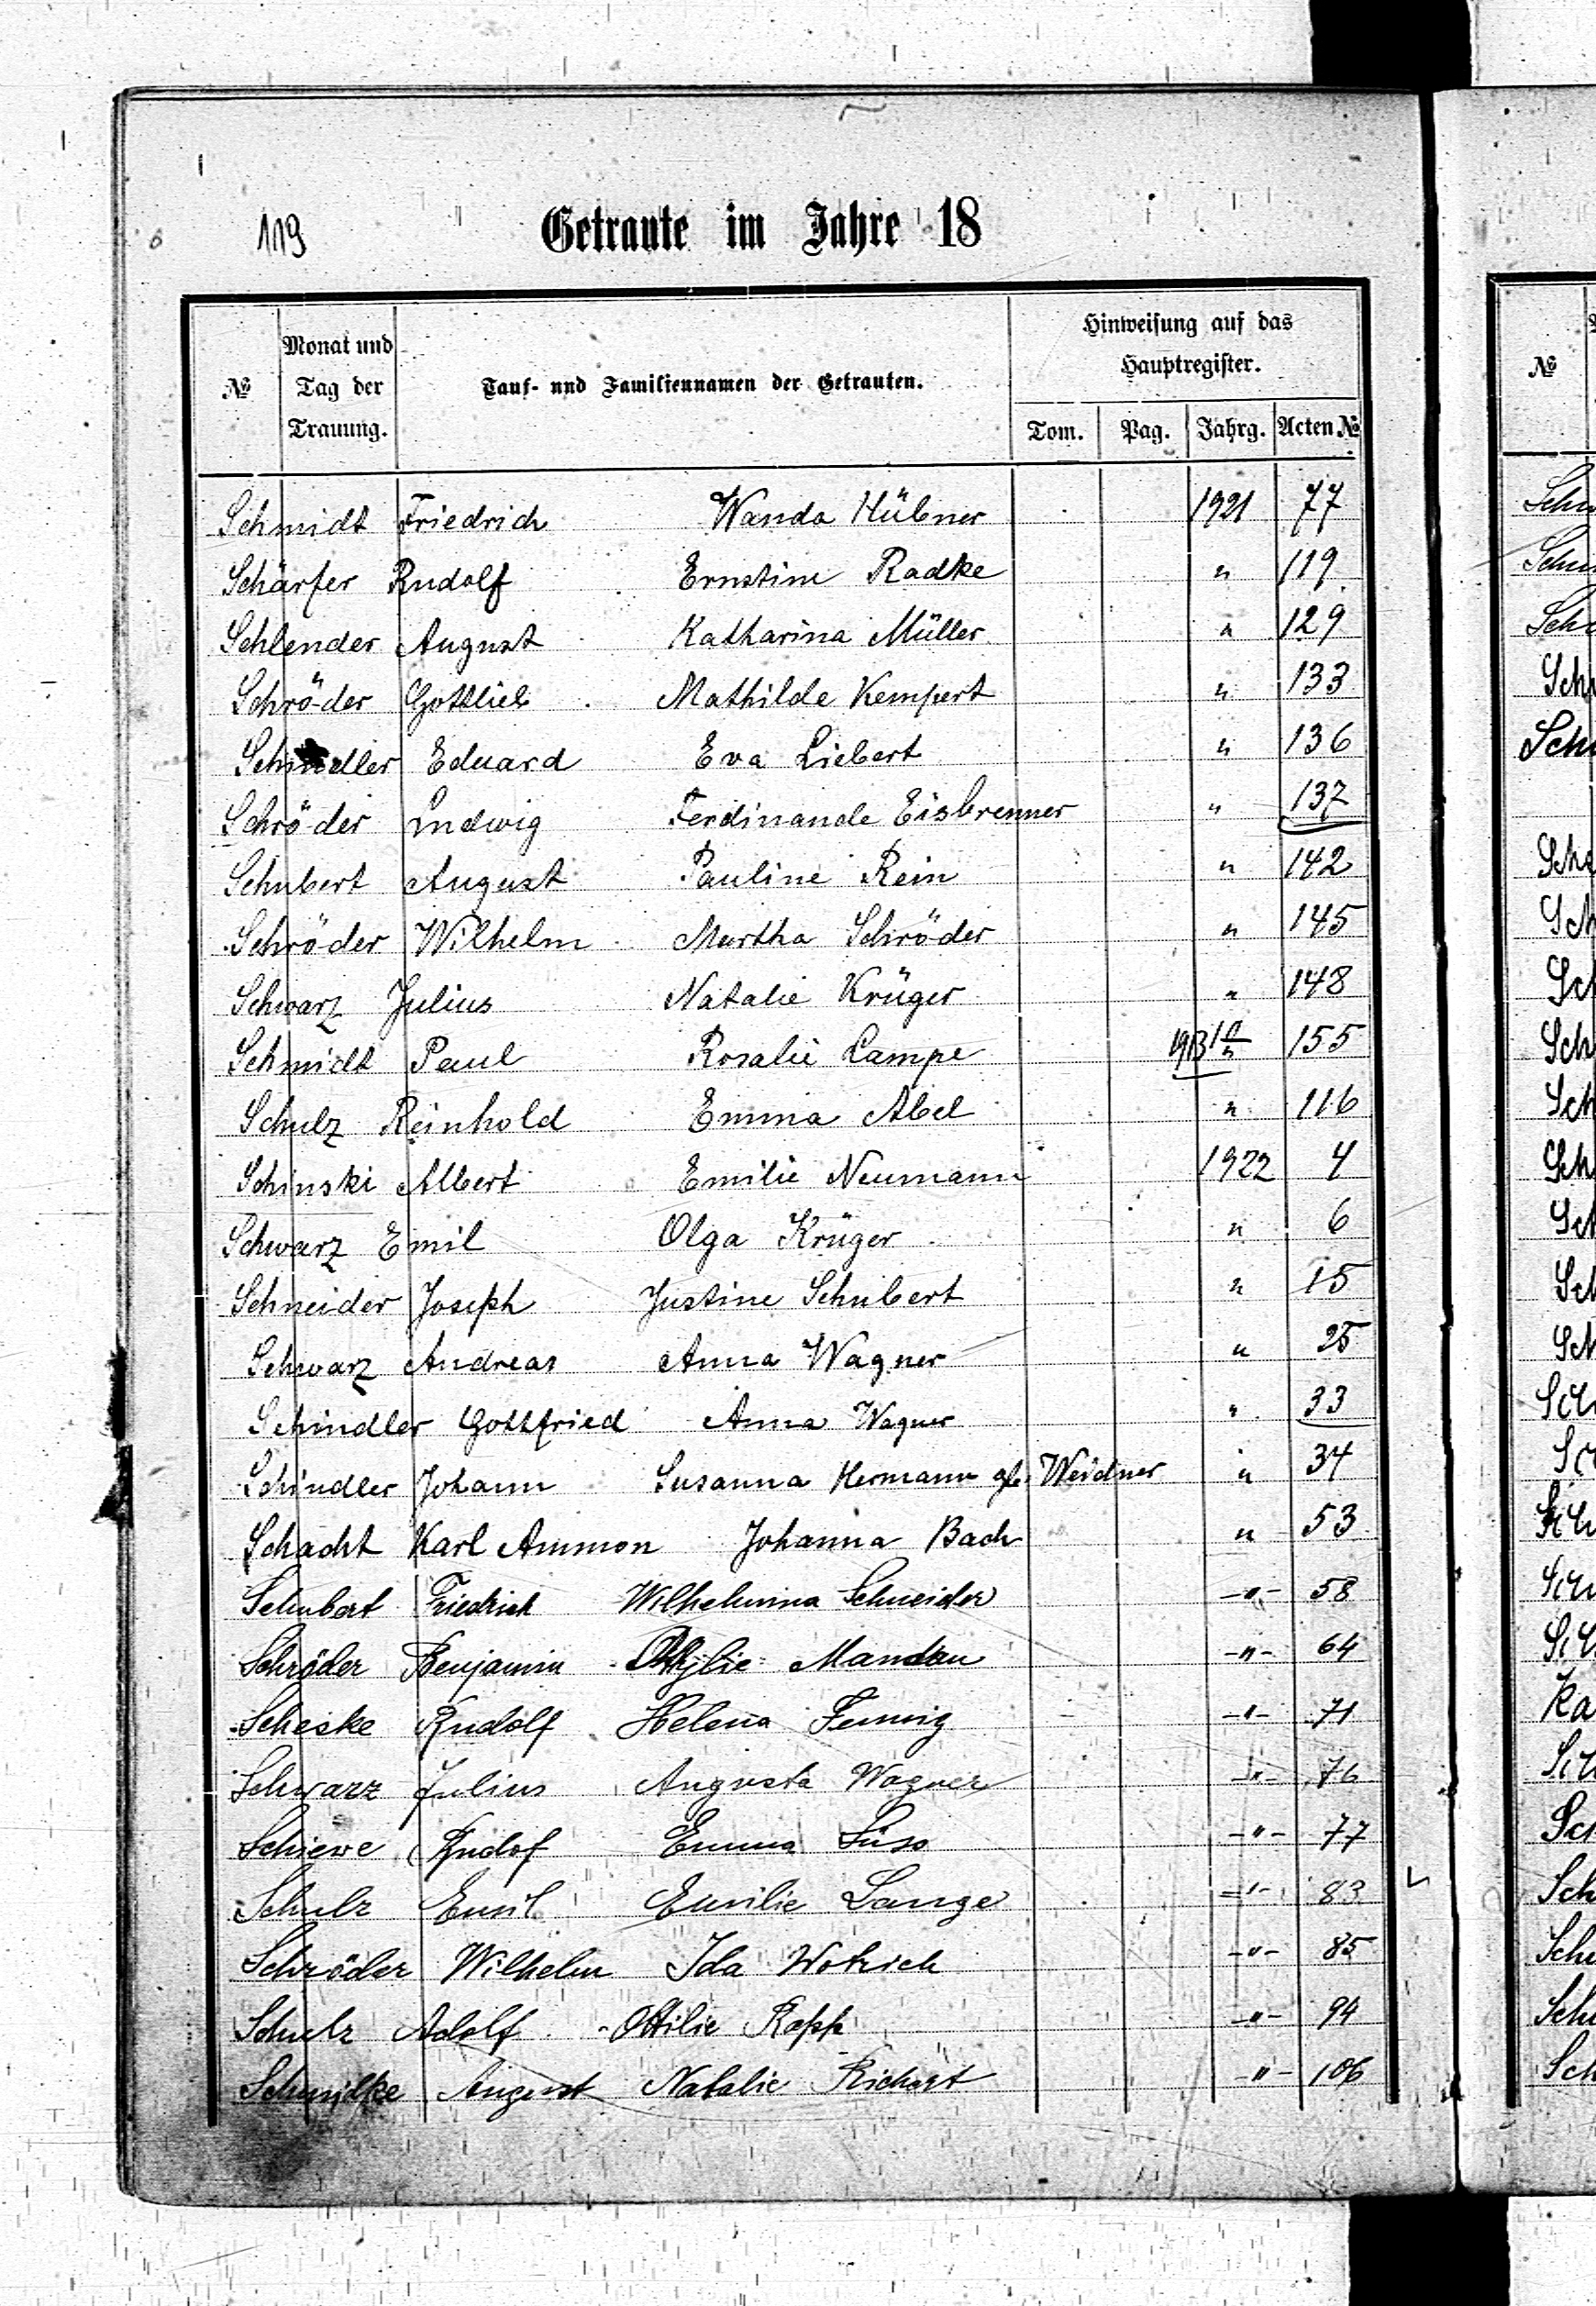 119
Getraute im Jahre 18
№
Monat und Tag der Trauung.
Tauf- und Familiennamen der Getrauten.
Hinweisung auf das Hauptregister.
Tom. Pag. Jahrg. Acten №
Schmidt Friedrich Wanda Hübner 1921 77
Schärfer Rudolf Ernstine Radke " 119
Schlender August Katharina Müller " 129
Schröder Gottlieb Mathilde Kempert " 133
Schindler Eduard Eva Liebert " 136
Schröder Ludwig Ferdinande Eisbrenner " 137
Schubert August Pauline Rein " 142
Schröder Wilhelm Martha Schröder " 145
Schwarz Julius Natalie Krüger " 148
Schmidt Paul Rosalie Lampe 155
Schulz Reinhold Emma Abel " 116
Schinski Albert Emilie Neumann 1922 4
Schwarz Emil Olga Krüger " 6
Schneider Joseph Justine Schubert " 15
Schwarz Andreas Anna Wagner " 25
Schindler Gottfried Anna Wagner " 33
Schindler Johann Susanna Hermann Weidner " 34
Schacht Karl Ammon Johanna Bach " 53
Schubert Friedrich Wilhelmina Schneider -"- 58
Schröder Benjamin -"- 64
Scheske Rudolf Helena -"- 71
Schwarz Julius Augusta Wagner -"- 76
Schiewe Rudof Emma -"- 77
Schulz Emil Emilie Lange -"- 83
Schröder Wilhelm Ida -"- 85
Schulz Adolf Ottilie Rapp -"- 94
August Natalie Richert -"- 106
№